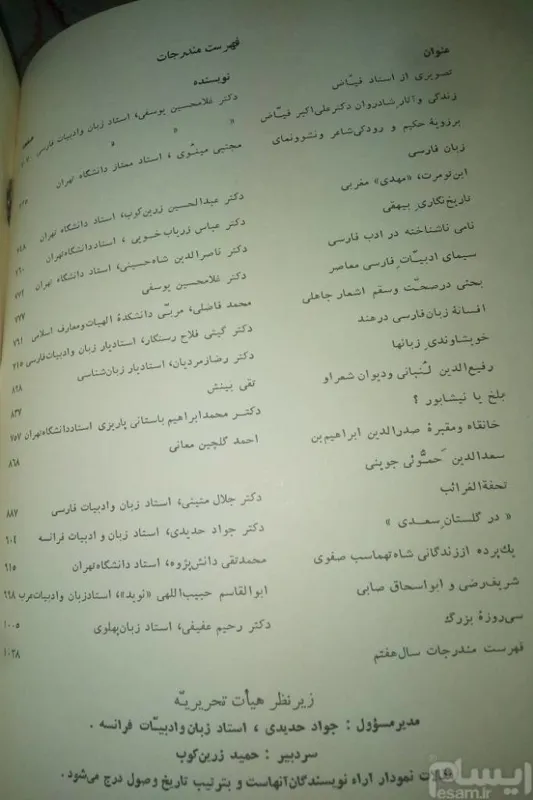 فهرست مندرجات
عنوان
نویسنده
تصویری از استاد فیّاض
زندگی و آثار شادروان دکتر علی‌اکبر فیّاض دکتر غلامحسین یوسفی، استاد زبان وادبیات فارسی
برزویهٔ حکیم و رودکی شاعر و نشوونمای
زبان فارسی مجتبی مینوی ، استاد ممتاز دانشگاه تهران
ابن‌تومرت، «مهدی» مغربی دکتر عبدالحسین زرین‌کوب، استاد دانشگاه تهران
تاریخ‌نگاری بیهقی دکتر عباس زریاب‌خویی ، استاد دانشگاه‌تهران
نامی ناشناخته در ادب فارسی دکتر ناصرالدین شاه‌حسینی، استاد دانشگاه تهران
سیمای ادبیّات فارسی معاصر دکتر غلامحسین یوسفی
بحثی درصحّت وسقم اشعار جاهلی محمد فاضلی، مربّی دانشکدهٔ الهیات‌ومعارف اسلامی
افسانهٔ زبان‌فارسی درهند دکتر گیتی فلاح رستگار، استادیار زبان وادبیات‌فارسی
خویشاوندی زبانها دکتر رضازمردیان، استادیار زبان‌شناسی ۸۲۸
رفیع‌الدین لُنبانی ودیوان شعر او تقی بینش ۸۳۷
بلخ یا نیشابور ؟ دکتر محمدابراهیم باستانی پاریزی استاددانشگاه‌تهران
خانقاه ومقبرهٔ صدرالدین ابراهیم‌بن
سعدالدین حَمّوئی جوینی احمد گلچین معانی ۸۶۸
تحفةالغرائب دکتر جلال متینی، استاد زبان وادبیات فارسی ۸۸۷
« در گلستان سعدی » دکتر جواد حدیدی، استاد زبان و ادبیات فرانسه
یك‌پرده اززندگانی شاه‌تهماسب صفوی محمدتقی دانش‌پژوه، استاد دانشگاه‌تهران
شریف‌رضی و ابواسحاق صابی ابوالقاسم حبیب‌اللهی «نوید»، استادزبان وادبیات‌عرب
سی‌روزهٔ بزرگ دکتر رحیم عفیفی، استاد زبان‌پهلوی ۱۰۰۵
فهرست مندرجات سال‌هفتم ۱۰۲۸
زیرنظر هیأت تحریریّه
مدیرمسؤول : جواد حدیدی ، استاد زبان وادبیّات فرانسه .
سردبیر : حمید زرین‌کوب
مقالات نمودار آراء نویسندگان‌آنهاست و بترتیب تاریخ وصول درج می‌شود .
ایسام
esam.ir